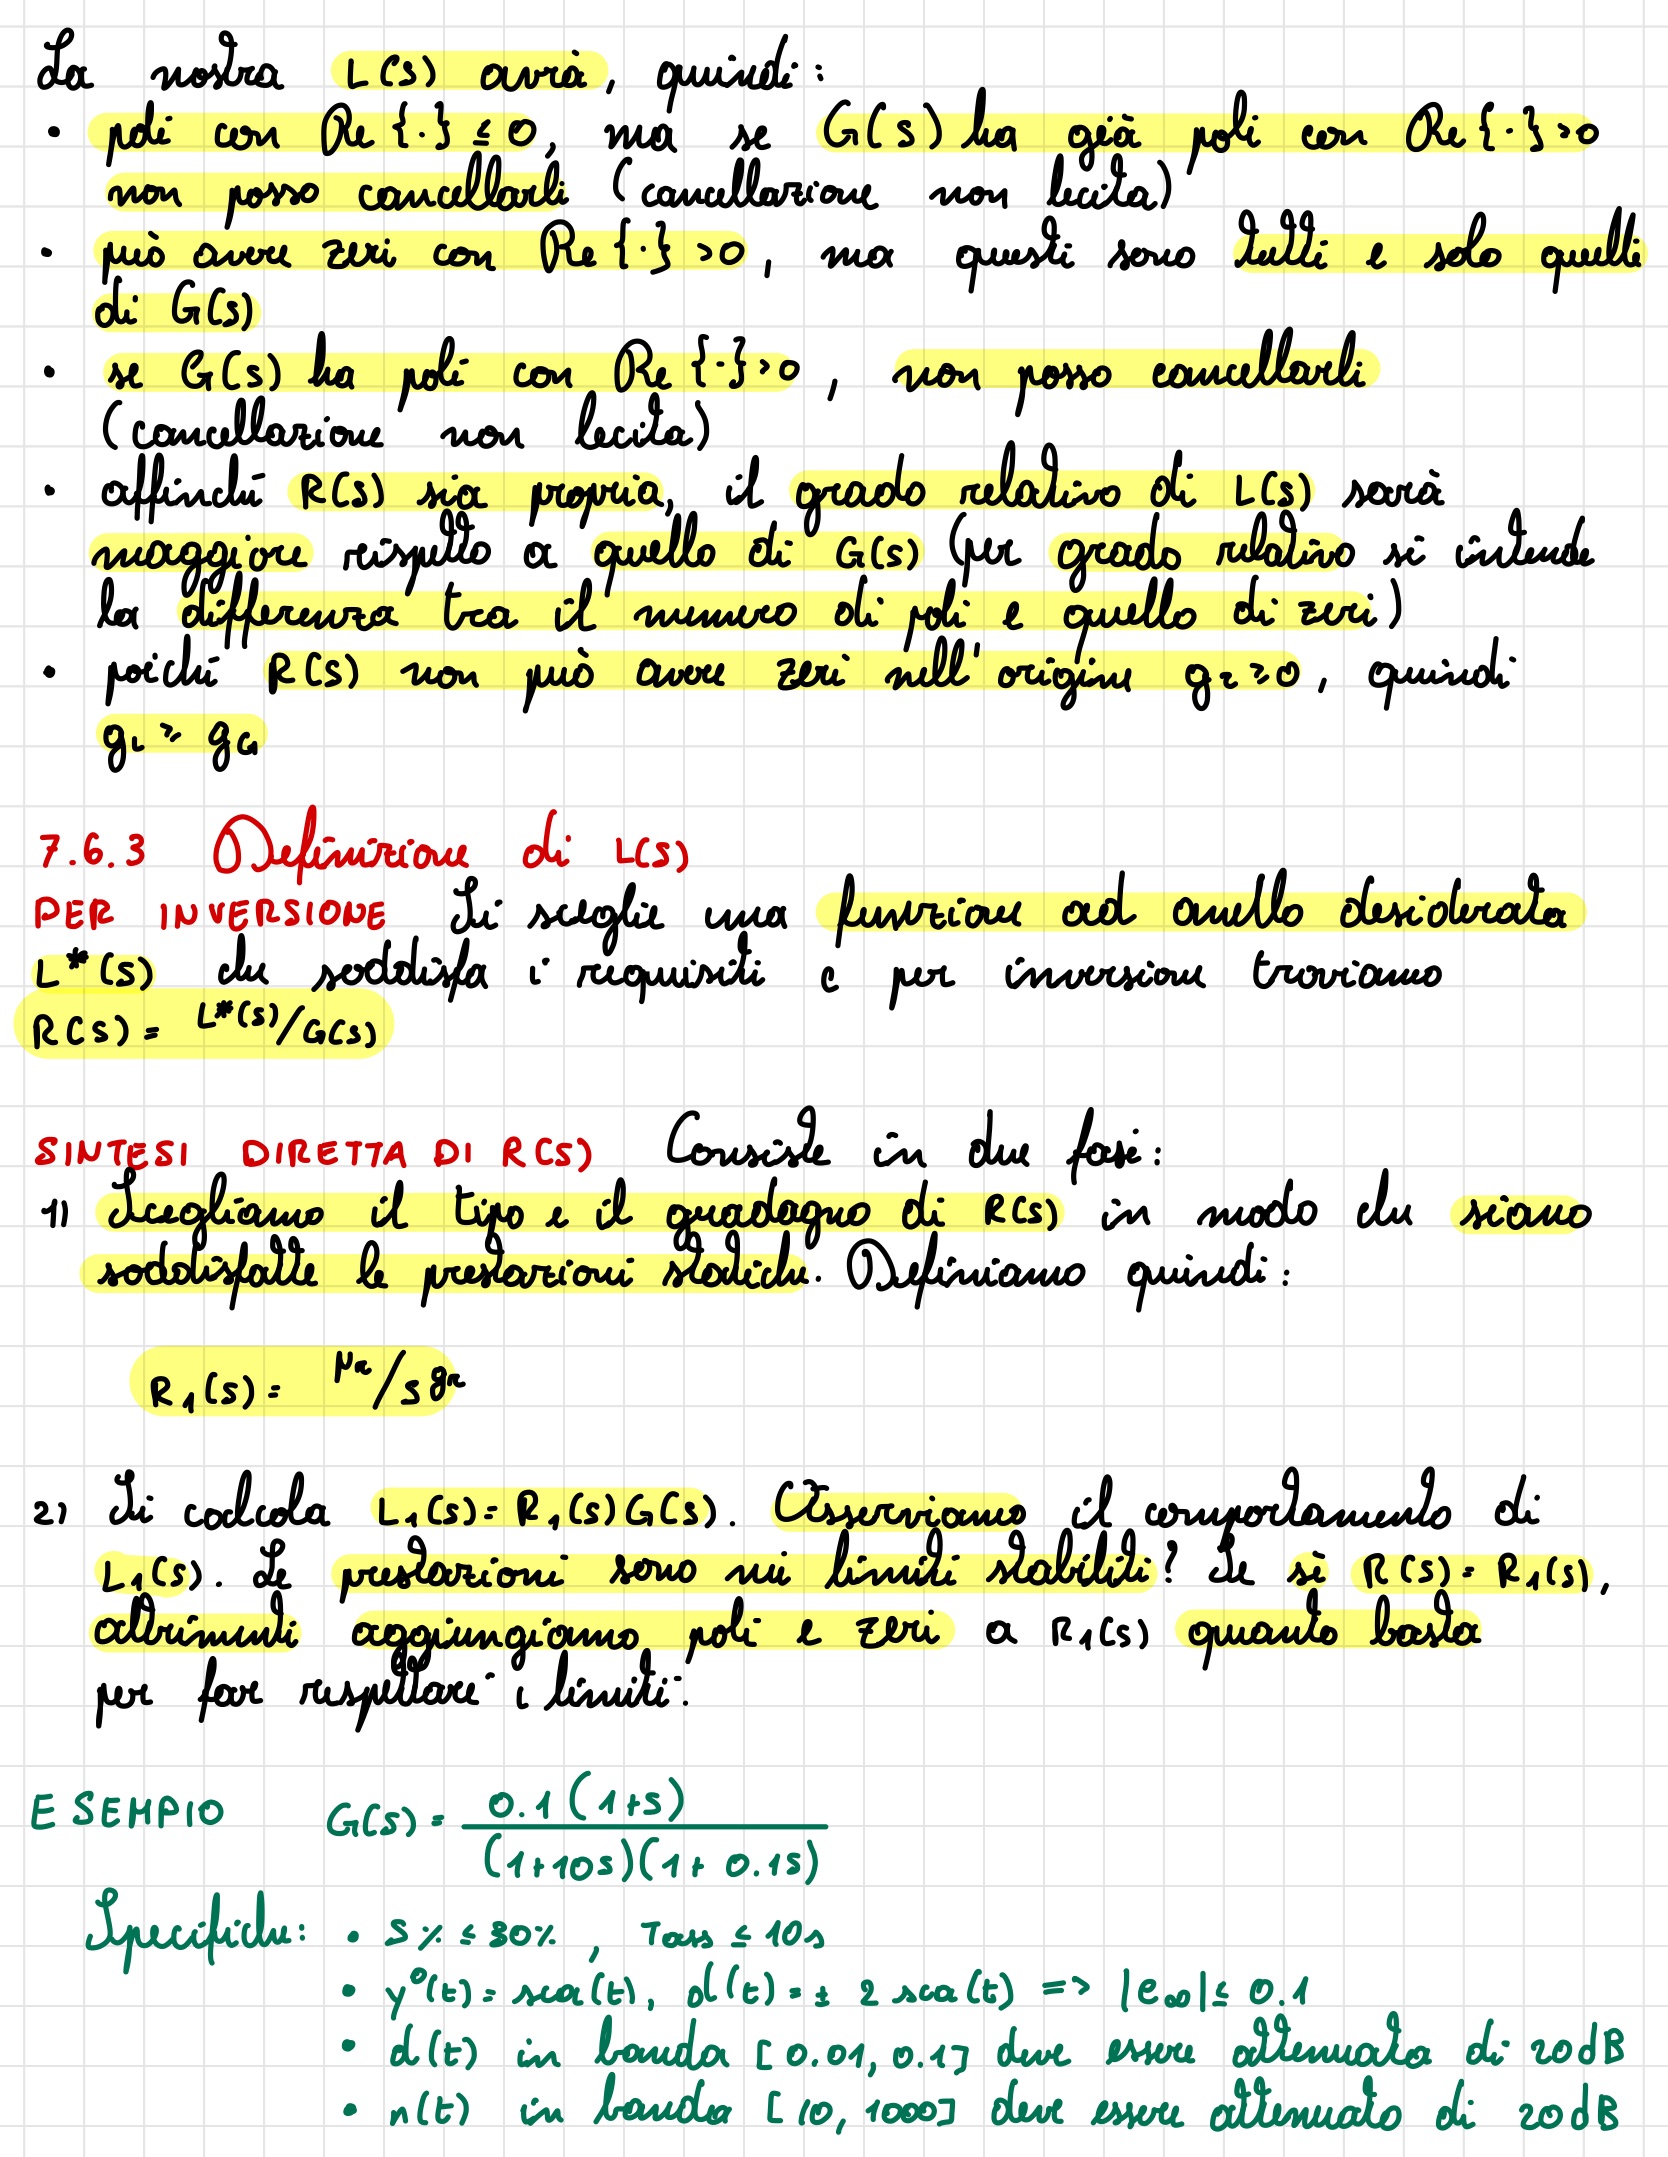 La nostra L(s) avrà, quindi:
• poli con Re{·} ≤ 0, ma se G(s) ha già poli con Re{·} > 0
non posso cancellarli (cancellazione non lecita)
• può avere zeri con Re{·} > 0, ma questi sono tutti e solo quelli
di G(s)
• se G(s) ha poli con Re{·} > 0, non posso cancellarli
(cancellazione non lecita)
• affinché R(s) sia propria, il grado relativo di L(s) sarà
maggiore rispetto a quello di G(s) (per grado relativo si intende
la differenza tra il numero di poli e quello di zeri)
• poiché R(s) non può avere zeri nell'origine gr ≥ 0, quindi
gL ≥ gG
7.6.3 Definizione di L(s)
PER INVERSIONE Si sceglie una funzione ad anello desiderata
L*(s) che soddisfa i requisiti e per inversione troviamo
R(s) = L*(s)/G(s)
SINTESI DIRETTA DI R(s) Consiste in due fasi:
1) Scegliamo il tipo e il guadagno di R(s) in modo che siano
soddisfatte le prestazioni statiche. Definiamo quindi:
R1(s) = μr/s^gr
2) Si calcola L1(s) = R1(s)G(s). Osserviamo il comportamento di
L1(s). Le prestazioni sono nei limiti stabiliti? Se sì R(s) = R1(s),
altrimenti aggiungiamo poli e zeri a R1(s) quanto basta
per far rispettare i limiti.
ESEMPIO G(s) = 0.1(1+s) / (1+10s)(1+0.1s)
Specifiche: • S% ≤ 30%, Tass ≤ 10s
• y⁰(t) = sca(t), d(t) = ± 2 sca(t) => |e∞| ≤ 0.1
• d(t) in banda [0.01, 0.1] deve essere attenuata di 20dB
• n(t) in banda [10, 1000] deve essere attenuato di 20dB